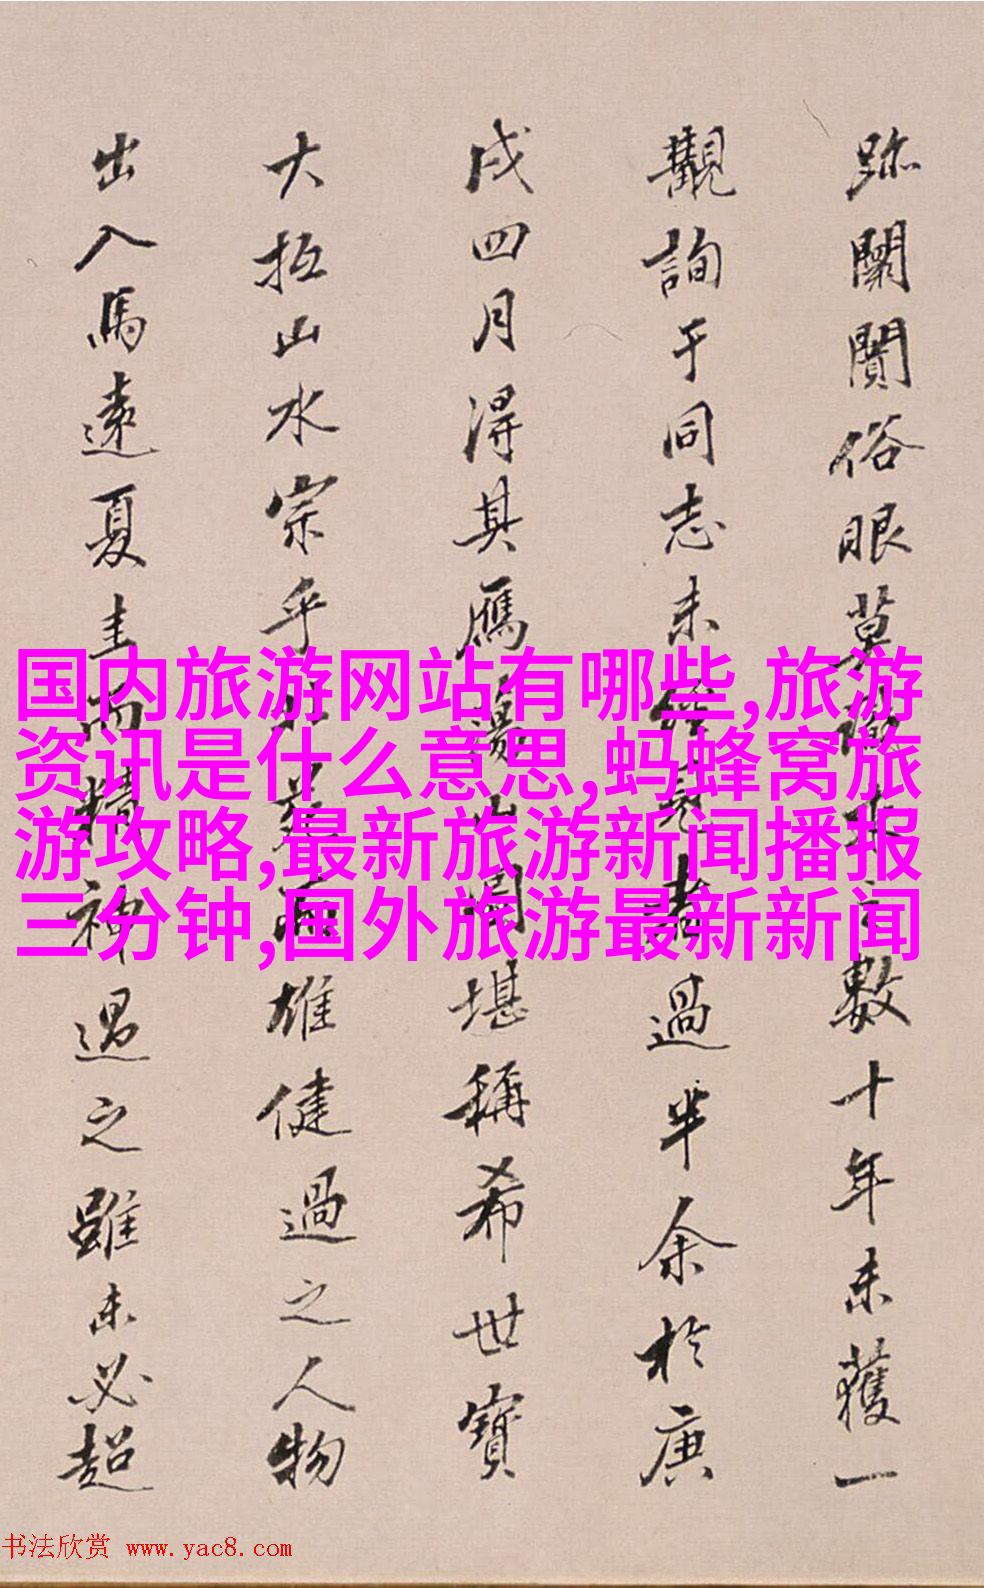 跡闤闠俗眼莫
數十年未獲一
觀詢于同志未
者過半余於庚
戌四月得其雁蕩
堪稱希世寶
大抵山水宗乎
雄健過之人物
出入馬遠夏圭而精神逕之雖未必超
国内旅游网站有哪些,旅游
资讯是什么意思,蚂蜂窝旅
游攻略,最新旅游新闻播报
三分钟,国外旅游最新新闻
书法欣赏 www.yac8.com